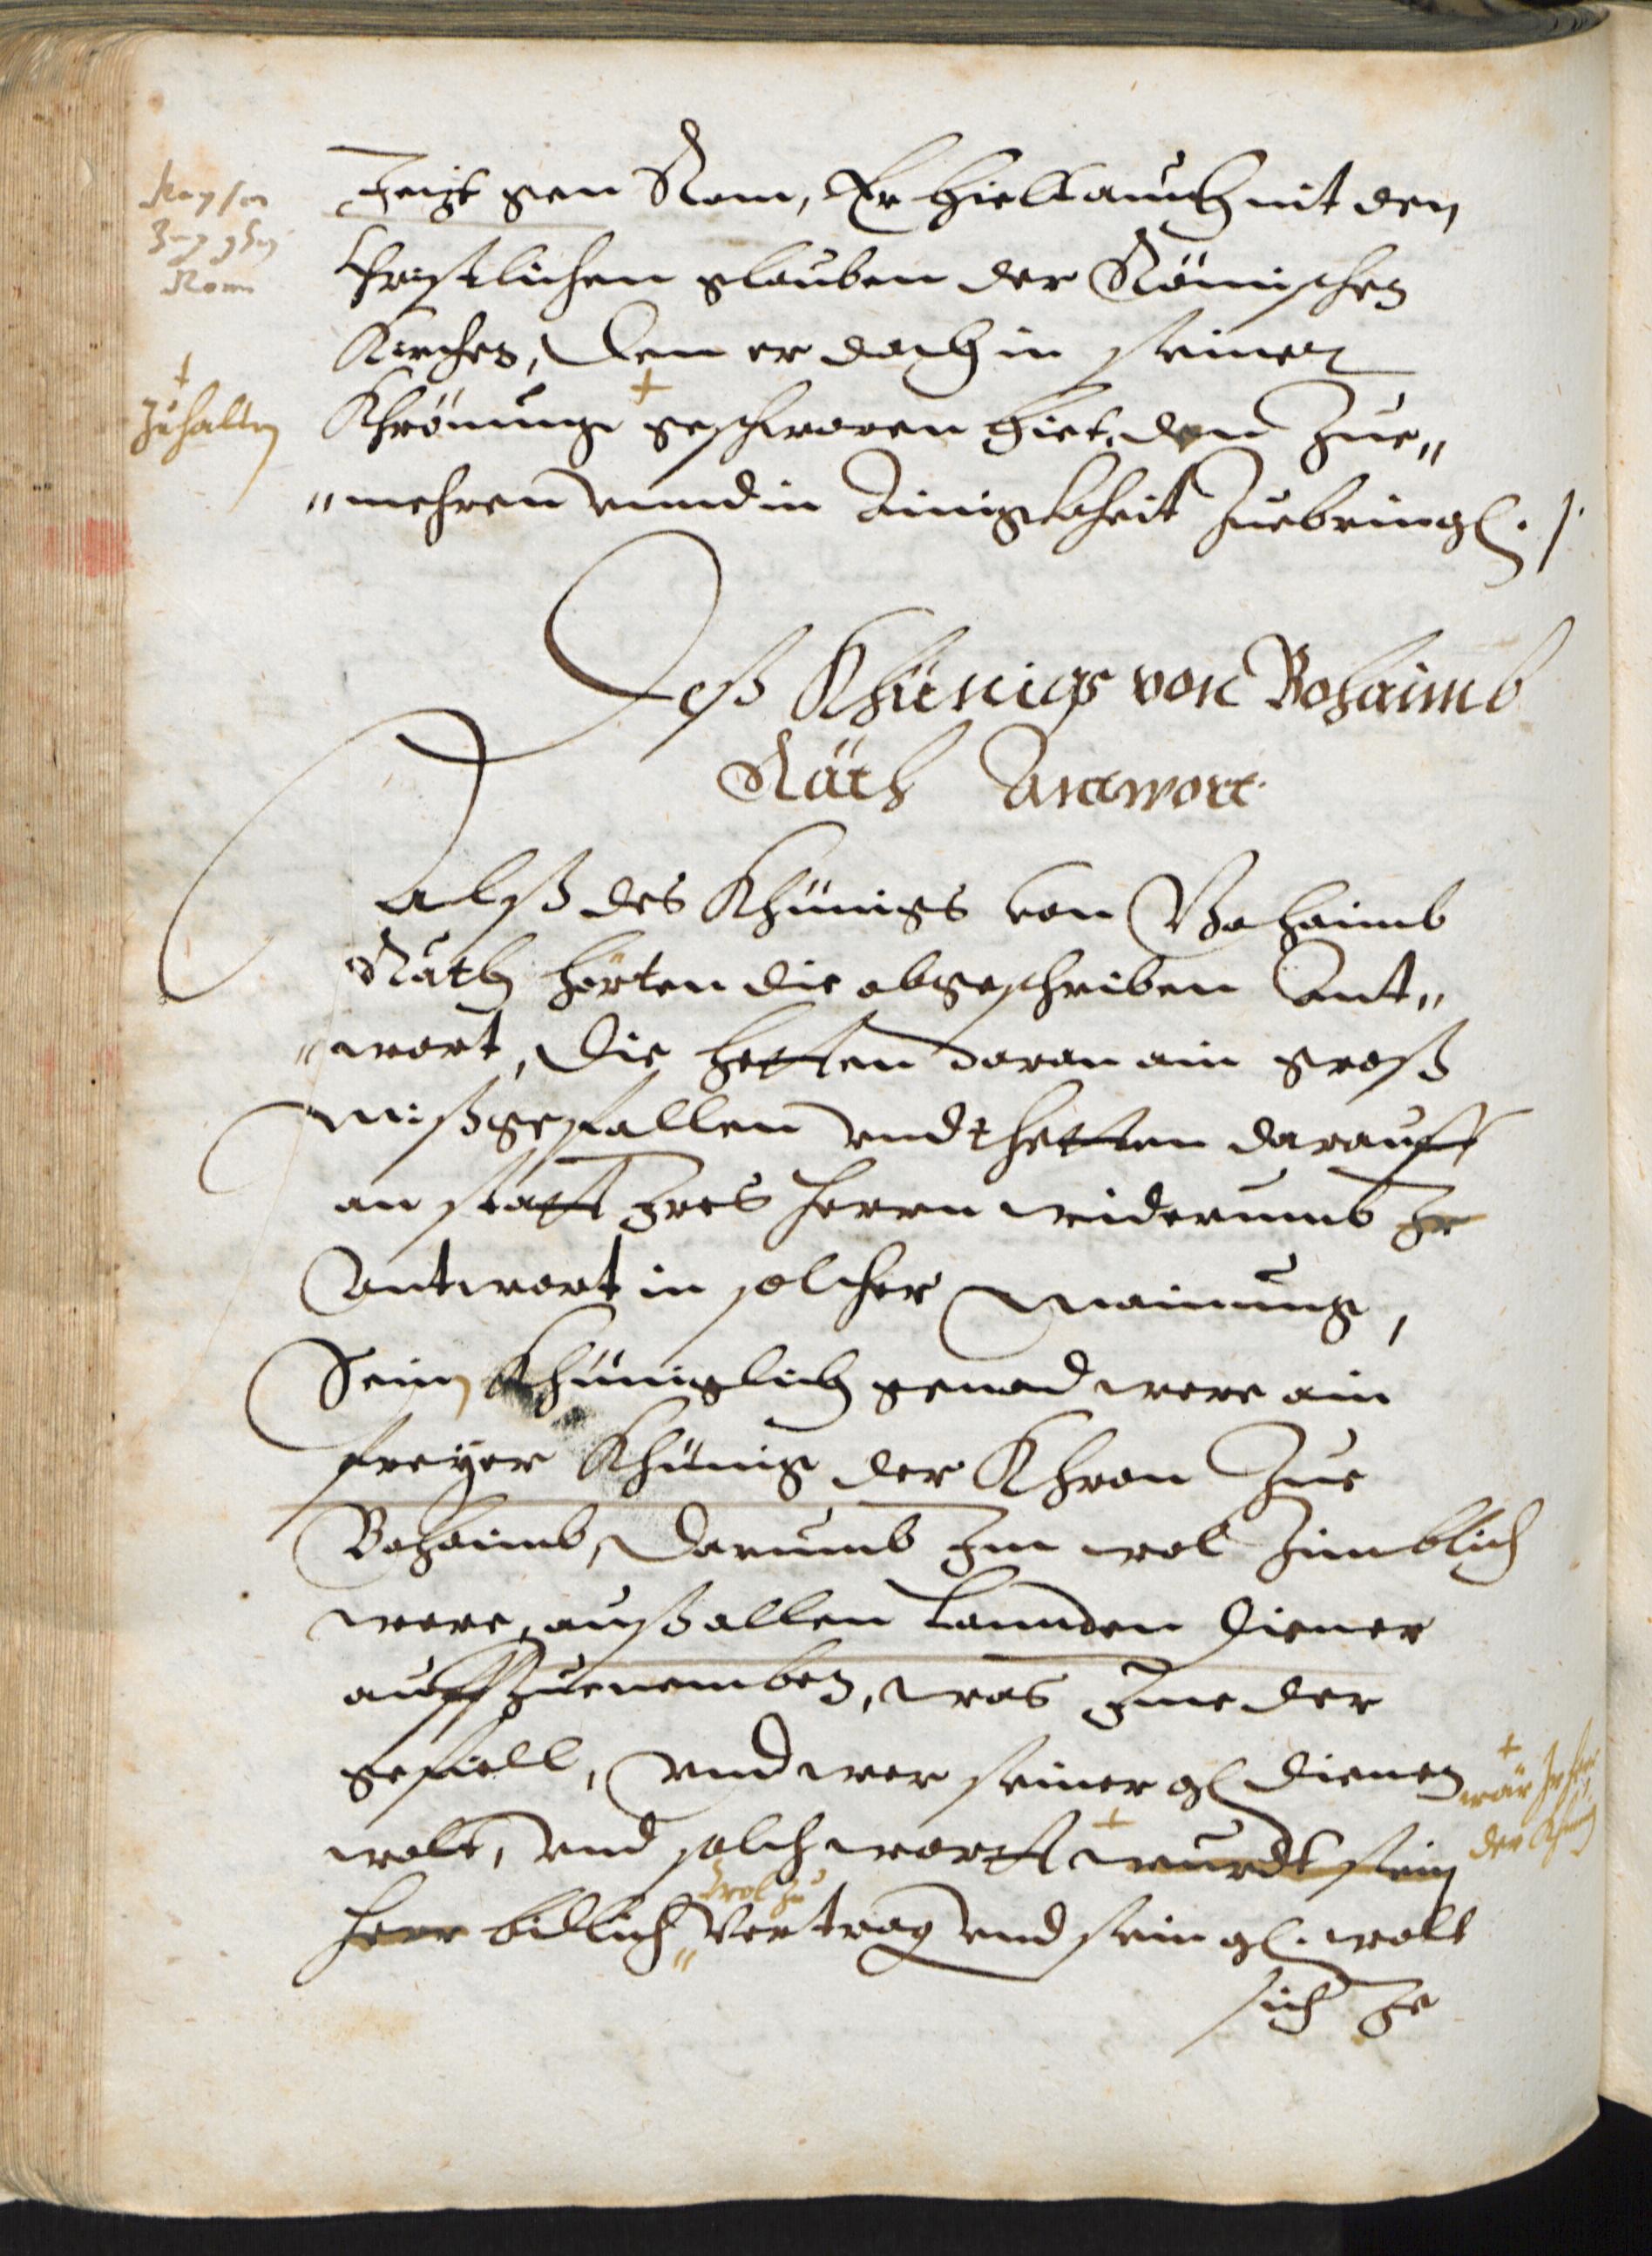 Kayser
Zug gehn
Rom
Zeigt gen Rom, Er hielt auch nit den
Christlichen glauben der Römischen
Kirchen, dem er doch in seiner
+
zuhalten
Khrönung + geschworen hiet, den Zue„
„mehren vnnd in Ainigkheit Zuebring(en)./.
Deß Khünigs von Bohaimb
Räth Antwort.
Alß des Khünigs von Bohaimb
Räth hörten die abgeschriben Ant„
„wort, Die hetten daran ain groß
mißgefallen vnd thetten darauff
an statt Ires herrn widerumb Ir
Antwort in solcher Mainung,
Sein Khüniglich genad were ain
freyer Khünig der Khron Zue
Bohaimb, Darumb Im wol Zimblich
were, auß allen Lannden Diener
auffZuenemben, was Ime der
gefiell, Vnd wer seiner g(naden) dienen
wolt, vnd solch wortt + wurdt sein
+ wär Ir herr
der Khünig
herr billich „ wol zu Vertrag vnd sein g(nad). wolt
sich Ze